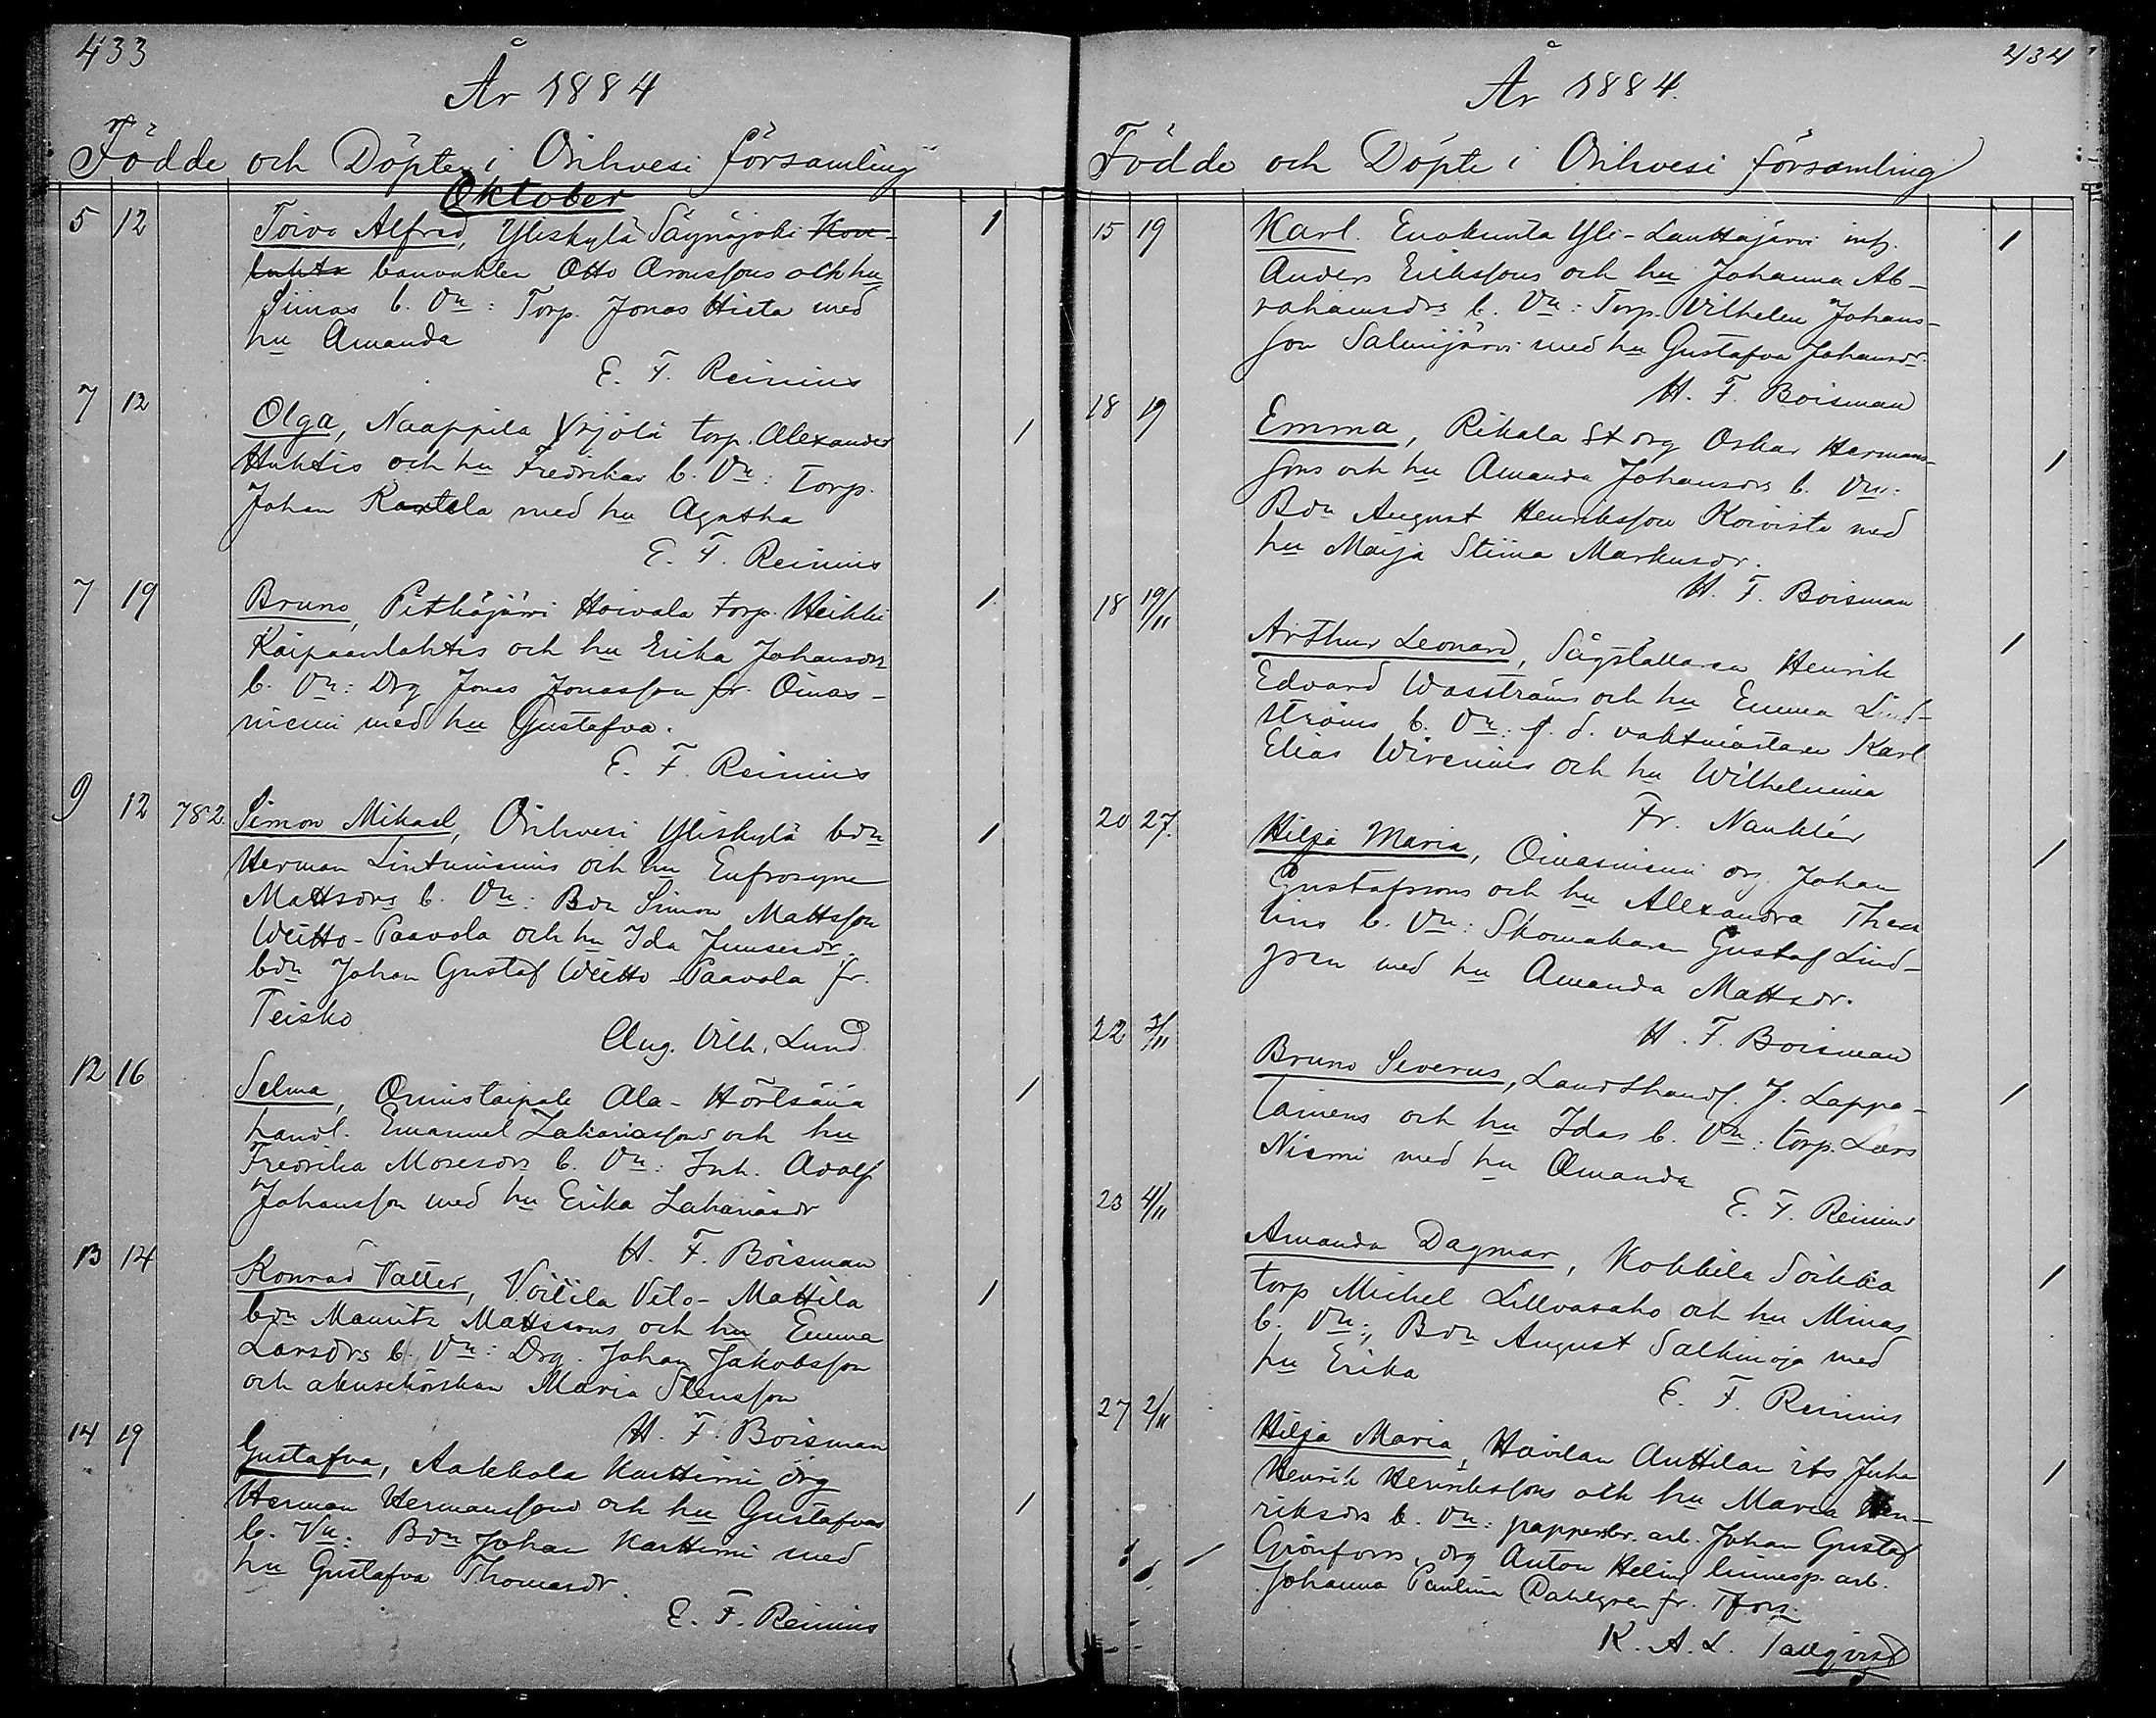 433
År 1884
Födde och Döpte i Orihvesi församling
Oktober
5 12 Toivo Alfred, Yliskylä Säynäjoki Kou- 1
luhta banvakten Otto Arvissons och hu
Siinas b. Vn: Torp. Jonas Hieta med
hu Amanda
E. F. Reinius
7 12 Olga, Naappila Yrjölä torp. Alexander 1
Huhtis och hu Fredrikas b. Vn: Torp.
Johan Kantela med hu Agatha
E. F. Reinius
7 19 Bruno, Pitkäjärvi Hoivala torp. Heikki 1
Kaipaanlahtis och hu Erika Johansdrs
b. Vn: Drg Jonas Jonasson fr. Oinas-
niemi med hu Gustafva.
E. F. Reinius
9 12 782. Simon Mikael, Orihvesi Yliskylä bdn 1
Herman Lintuniemis och hu Eufrosyne
Mattsdrs b. Vn: Bdn Simon Mattsson
Weitto-Paavola och hu Ida Juusesdr.
bdn Johan Gustaf Weitto-Paavola fr.
Teisko
Aug. Vilh. Lund
12 16 Selma, Onnistaipale Ala-Hörtsänä 1
handl. Emanuel Zakariassons och hu
Fredrika Mosesdrs b. Vn: Inh. Adolf
Johansson med hu Erika Zakariasdr
H. F. Boisman
13 14 Konrad Valter, Voitila Velo-Mattila 1
bdn Mauritz Mattssons och hu Emma
Larsdrs b. Vn: Drg. Johan Jakobsson
och ackuschörskan Maria Stensson
H. F. Boisman
14 19 Gustafva, Aakkola Karttimi drg
Herman Hermanssons och hu Gustafvas 1
b. Vn: Bdn Johan Karttimi med
hu Gustafva Thomasdr.
E. F. Reinius
434
År 1884.
Födde och Döpte i Orihvesi församling
15 19 Karl. Enokunta Yli-Lauttajärvi inh. 1
Anders Erikssons och hu Johanna Ab-
rahamsdrs b. Vn: Torp. Vilhelm Johans-
son Salmijärvi med hu Gustafva Johansdr.
H. F. Boisman
18 19 Emma, Rikala St drg Oskar Hermans-
sons och hu Amanda Johansdrs b. Vn: 1
Bdn August Henriksson Koivisto med
hu Maija Stiina Markusdr.
H. F. Boisman
18 19/11 Arthur Leonard, Sågställaren Henrik 1
Edvard Wasströms och hu Emma Lind-
ströms b. Vn: f. d. vaktmästaren Karl
Elias Wirenius och hu Wilhelmina
Fr. Nauklér
20 27. Hilja Maria, Oinasniemi drg. Johan 1
Gustafssons och hu Alexandra There
lins b. Vn: Skomakaren Gustaf Lind-
gren med hu Amanda Mattsdr.
H. F. Boisman
22 2/11 Bruno Severus, Landthandl. J. Lappa- 1
lainens och hu Idas b. Vn: torp. Lars
Niemi med hu Amanda
E. F. Reinius
23 4/11 Amanda Dagmar, Kokkila Soikkia 1
torp Mickel Lillvasaho och hu Minas
b. Vn: Bdn August Salkinoja med
hu Erika
E. F. Reinius
27 2/11 Hilja Maria, Haivlan Anttilan its Juha 1
Henrik Henrikssons och hu Maria Hen-
riksdrs b. Vn: pappersbr. arb. Johan Gustaf
Grönfors, drg Anton Helin, linnesp. arb.
Johanna Paulina Dahlgren fr. Tfors.
K. A. L. Tallqvist